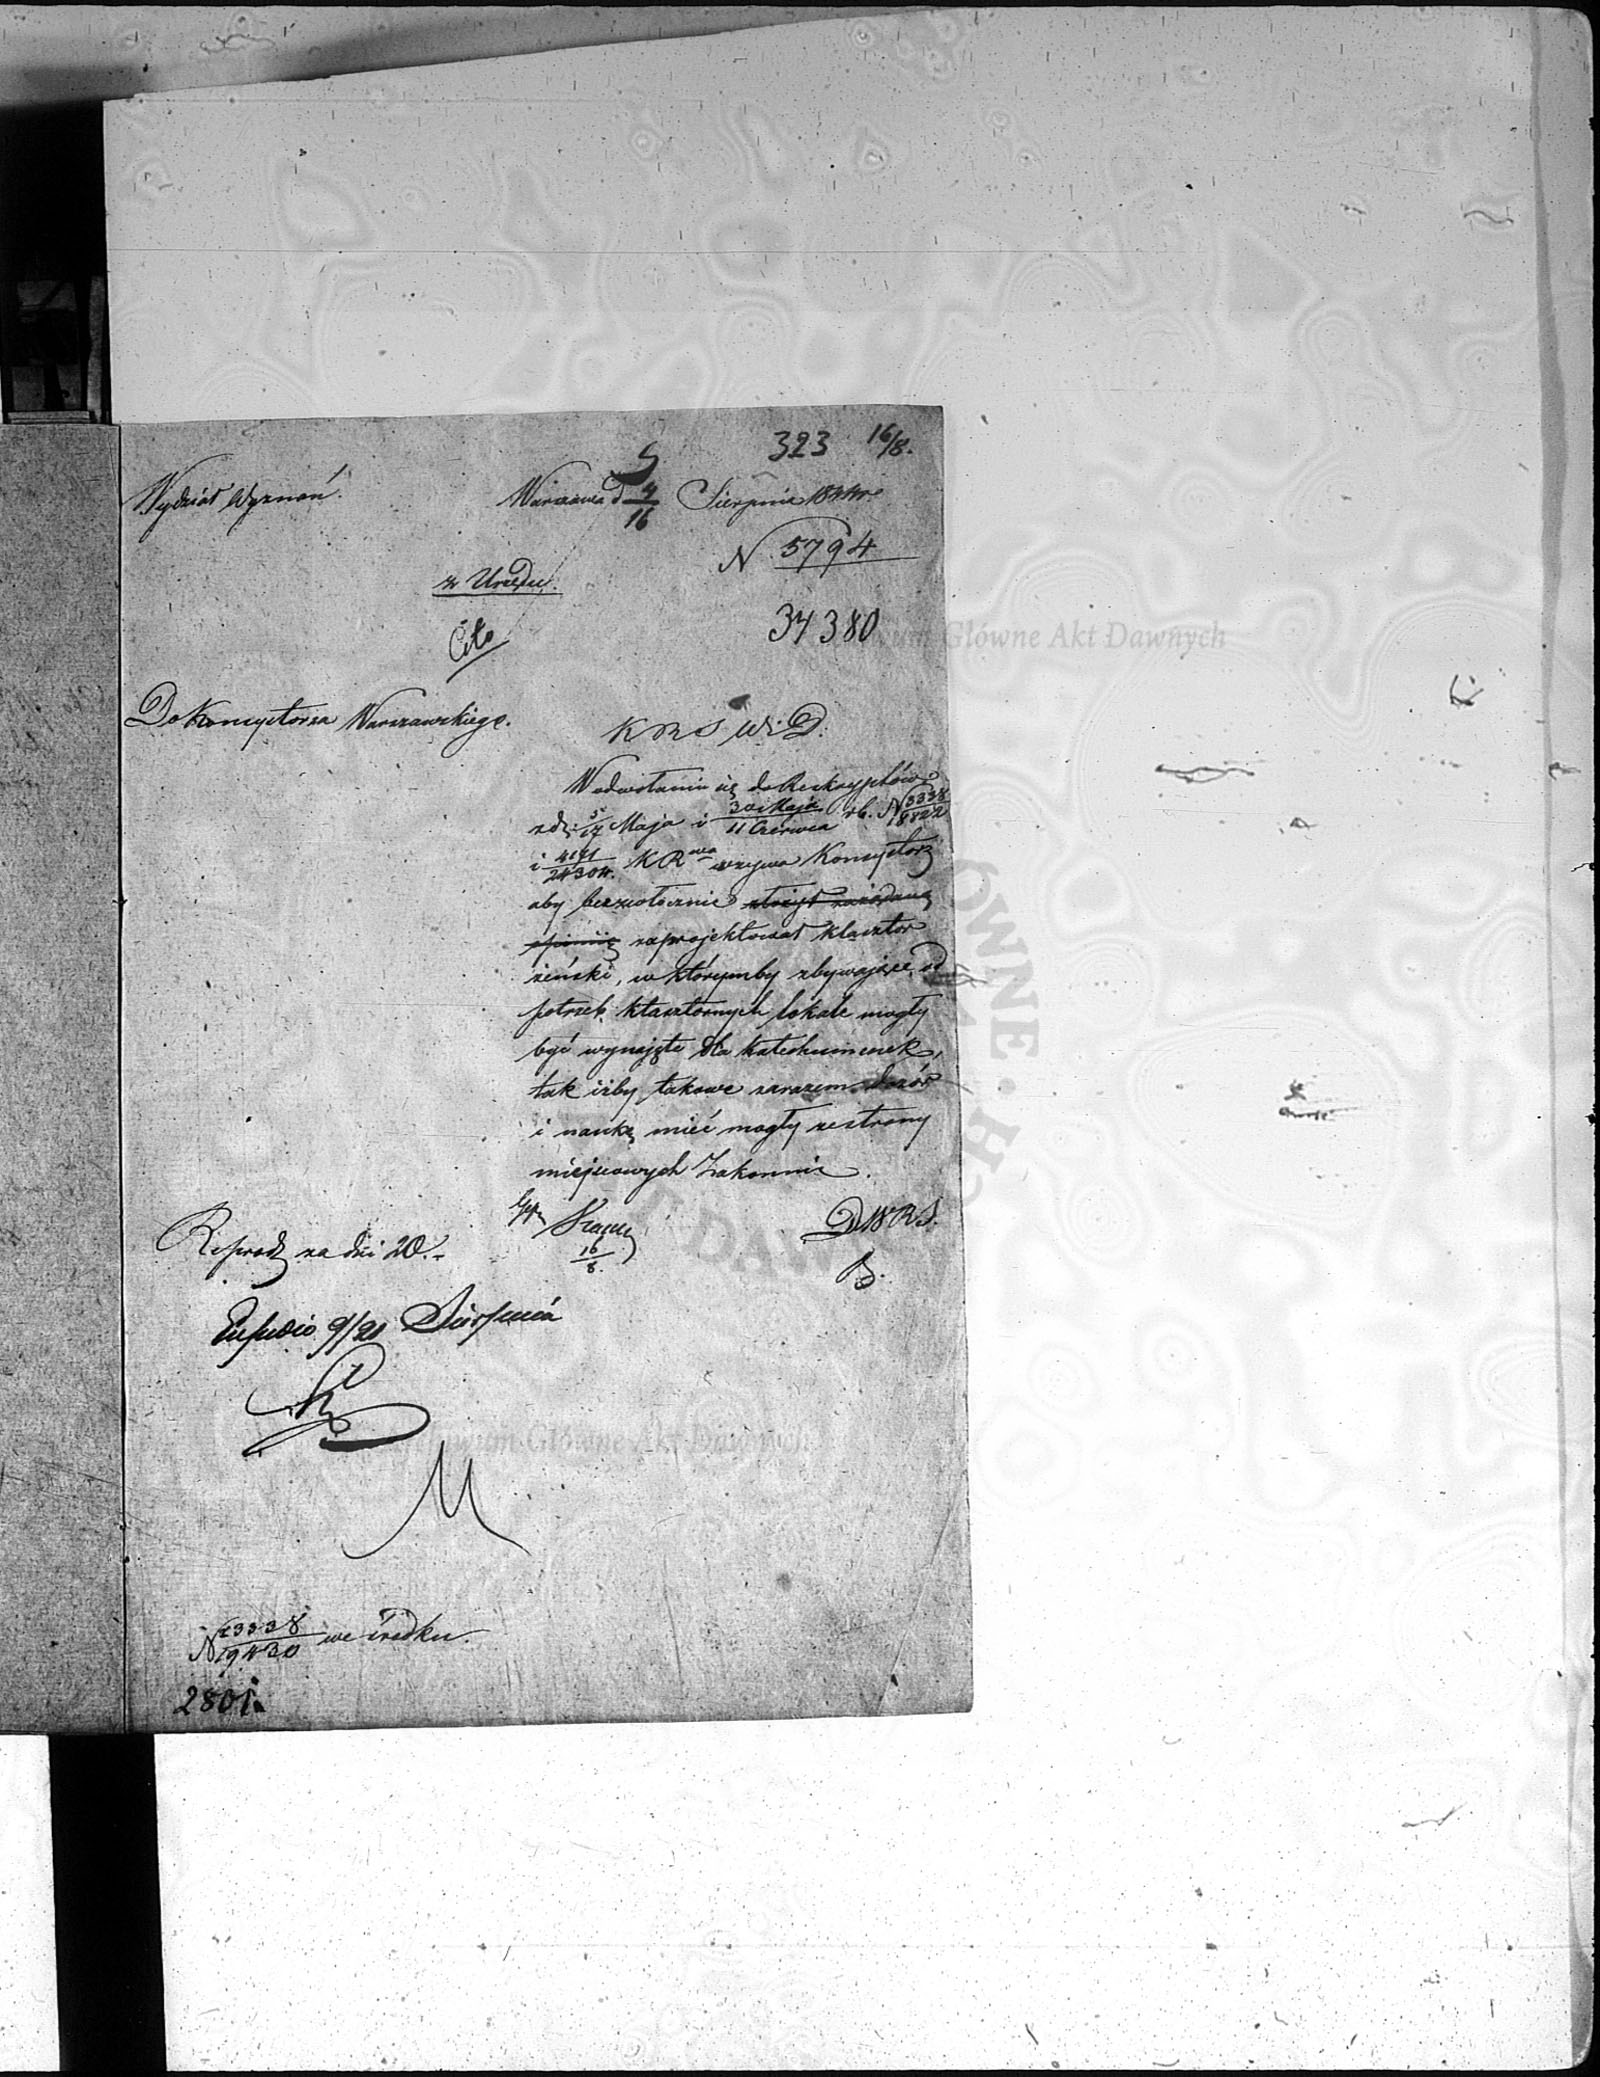 323 16/8.
Wydział Wyznań.
Warszawa d 4/16 Sierpnia 1844 r.
N 5794
z Urzędu.
34380
Cito
Do Konsystorza Warszawskiego.
K R S W i D.
W odwołaniu się do Reskryptów
z d. 5/17 Maja i 30 Maja/11 Czerwca r b. N 3338/18822
i 4171/24304. K R wa wzywa Konsystorz
aby bezzwłocznie złożył zażądaną
opinię zaprojektował klasztor
żeński, w którymby zbywające od
potrzeb klasztornych lokale mogły
być wynajęte dla katechumenek,
tak iżby takowe zarazem dozór
i naukę mieć mogły ze strony
miejscowych Zakonnic.
16/8.
D W R S.
B.
Reprod za dni 20.-
9/21 Sierpnia
M
N 3338/19430 we środku.
2801.
Archiwum Główne Akt Dawnych
Archiwum Główne Akt Dawnych